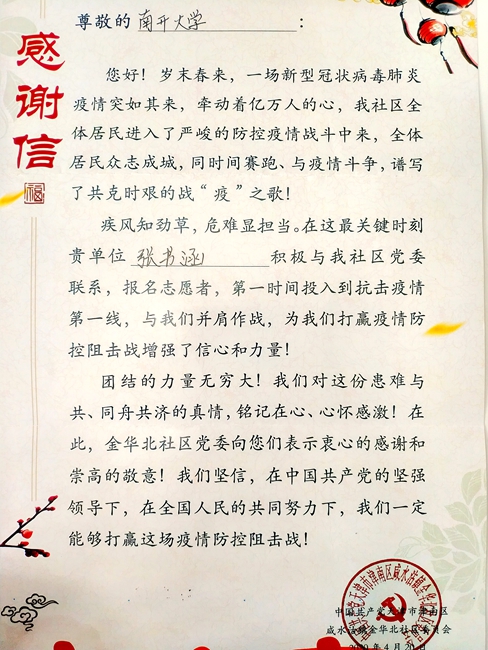 感谢信
福
尊敬的 南开大学：
您好！岁末春来，一场新型冠状病毒肺炎
疫情突如其来，牵动着亿万人的心，我社区全
体居民进入了严峻的防控疫情战斗中来，全体
居民众志成城，同时间赛跑、与疫情斗争，谱写
了共克时艰的战“疫”之歌！
疾风知劲草，危难显担当。在这最关键时刻
贵单位 张书涵 积极与我社区党委
联系，报名志愿者，第一时间投入到抗击疫情
第一线，与我们并肩作战，为我们打赢疫情防
控阻击战增强了信心和力量！
团结的力量无穷大！我们对这份患难与
共、同舟共济的真情，铭记在心、心怀感激！在
此，金华北社区党委向您们表示衷心的感谢和
崇高的敬意！我们坚信，在中国共产党的坚强
领导下，在全国人民的共同努力下，我们一定
能够打赢这场疫情防控阻击战！
中国共产党天津市津南区
咸水沽镇金华北社区委员会
2020年4月20日